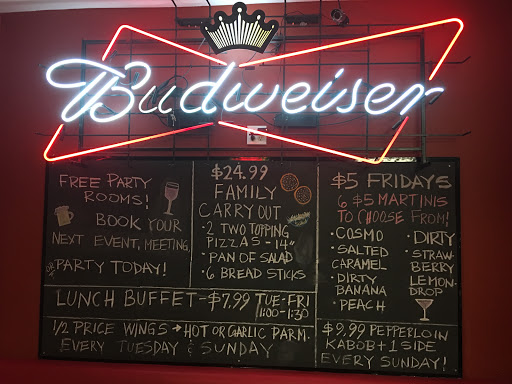 Budweiser
FREE PARTY
ROOMS!
BOOK YOUR
NEXT EVENT, MEETING,
OR PARTY TODAY!
$24.99
FAMILY
CARRY OUT
• 2 TWO TOPPING
PIZZAS - 14"
• PAN OF SALAD
• 6 BREAD STICKS
$5 FRIDAYS
6 $5 MARTINIS
TO CHOOSE FROM!
• COSMO
• SALTED
CARAMEL
• DIRTY
BANANA
• PEACH
• DIRTY
• STRAW-
BERRY
LEMON-
DROP
LUNCH BUFFET - $7.99 TUE-FRI
11:00-1:30
1/2 PRICE WINGS → HOT OR GARLIC PARM.
EVERY TUESDAY & SUNDAY
$9.99 PEPPERLOIN
KABOB + 1 SIDE
EVERY SUNDAY!